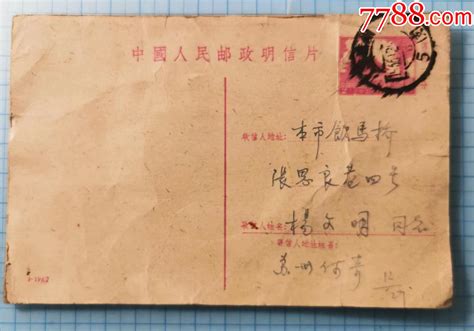 7788.com
中國人民邮政明信片
收信人地址: 本市飲馬橋
張思良巷四号
收信人姓名: 楊文明 同志
寄信人地址姓名:
苏州何
5